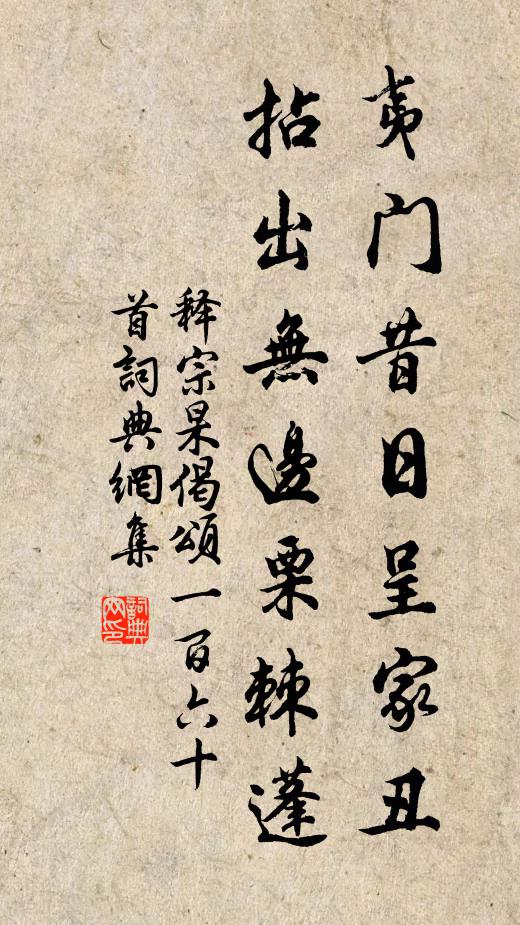 夷门昔日呈家丑
拈出無邊栗棘蓬
释宗杲偈頌一百六十
首詞典網集
詞典
网印